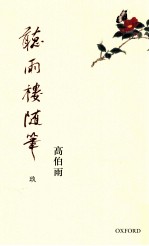 聽雨樓隨筆
玖
高伯雨
OXFORD